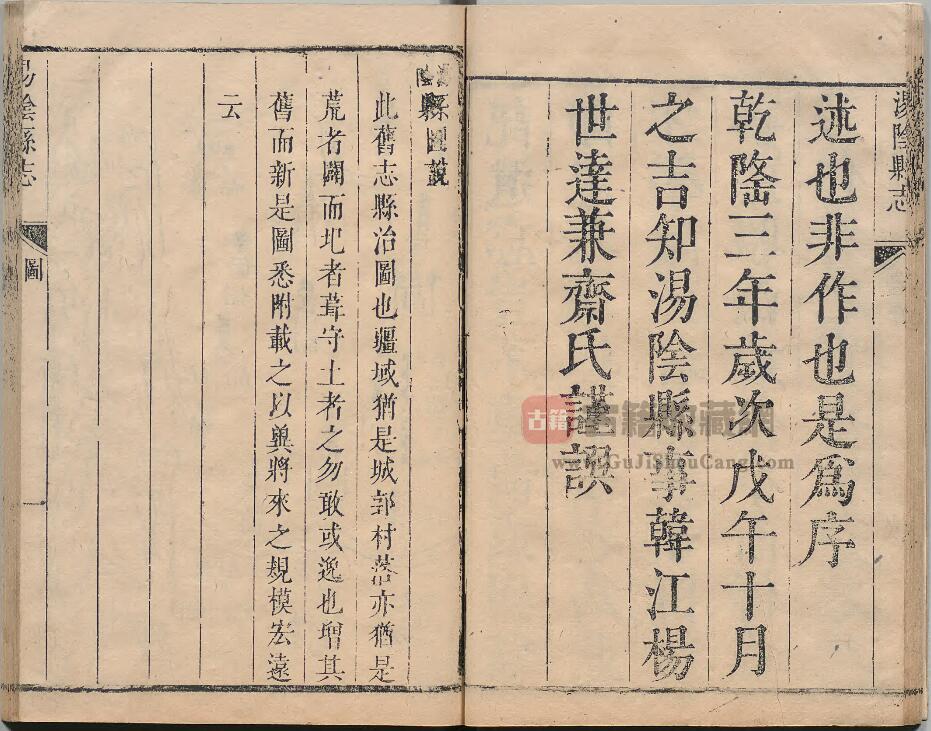 湯陰縣志
述也非作也是爲序
乾隆三年歲次戊午十月
之吉知湯陰縣事韓江楊
世達兼齋氏謹譔
縣圖說
此舊志縣治圖也疆域猶是城郭村落亦猶是
荒者闢而圮者葺守土者之勿敢或逸也增其
舊而新是圖悉附載之以興將來之規模宏遠
云
陰縣志
圖
一
古籍
www.GuJiShouCang.com